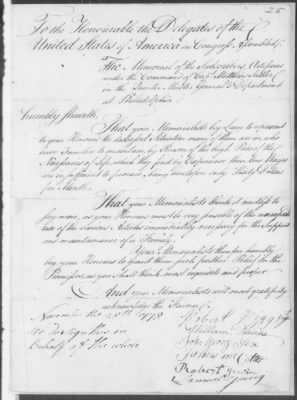 25
To the Honourable the Delegates of the
United States of America in Congress Assembled
The Memorial of the Subscribers, Artificers
under the Command of Capt Matthew
in the Quarter Master General's Department
at Philadelphia
humbly sheweth
That your Memorialists beg Leave to represent
to your Honours the distressful Situation many of them are in, who
have Families to maintain, by Reason of the high Price of the
Necessaries of Life, which they find by Experience their Wages
are insufficient to procure, being only Thirty Dollars
per Month.
That your Memorialists think it needless to
say more, as your Honours must be very sensible of the
rate of the various Articles immediately necessary for the Support
and maintenance of a Family.
Your Memorialists therefore humbly
beg your Honours to grant them such further Relief in the
Premises, as you shall think most requisite and proper
And your Memorialists will most gratefully
acknowledge the Favour.
November the 25th 1778
Robert
William
We Do Sign this in
John George
Behalf of the whole
James Mc
Robert
Samuel Young